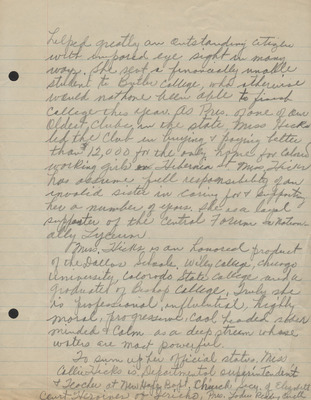 helped greatly an outstanding citizen
with impared eye sight in many
ways. She sent a financially unable
student to Butler College, who otherwise
would not have been able to finish
college this year. As Pres. of one of our
Oldest Clubs in the state, Miss Hicks
led the Club in buying & paying better
than $12,000 for the only home for Colored
working girls in Miss Hicks
has assumed full responsibility of an
invalid sister in caring for & supporting
her a number of years. She is a loyal
supporter of the Central Forum & Nation-
ally Lyceum.
Miss Hicks is an honored product
of the Dallas Schools, Wiley College, Chicago
University, Colorado State College and a
graduate of Bishop College. Truly she
is professional, influential, highly
moral, progressive, cool headed sober
minded & Calm as a deep stream whose
waters are most powerful.
To sum up her official status, Miss
Callie Hicks is Departmental superintendent
& Teacher at New Hope Bapt. Church; Secy. of Elizabeth
Court Heroines of Jericho, Mrs. John